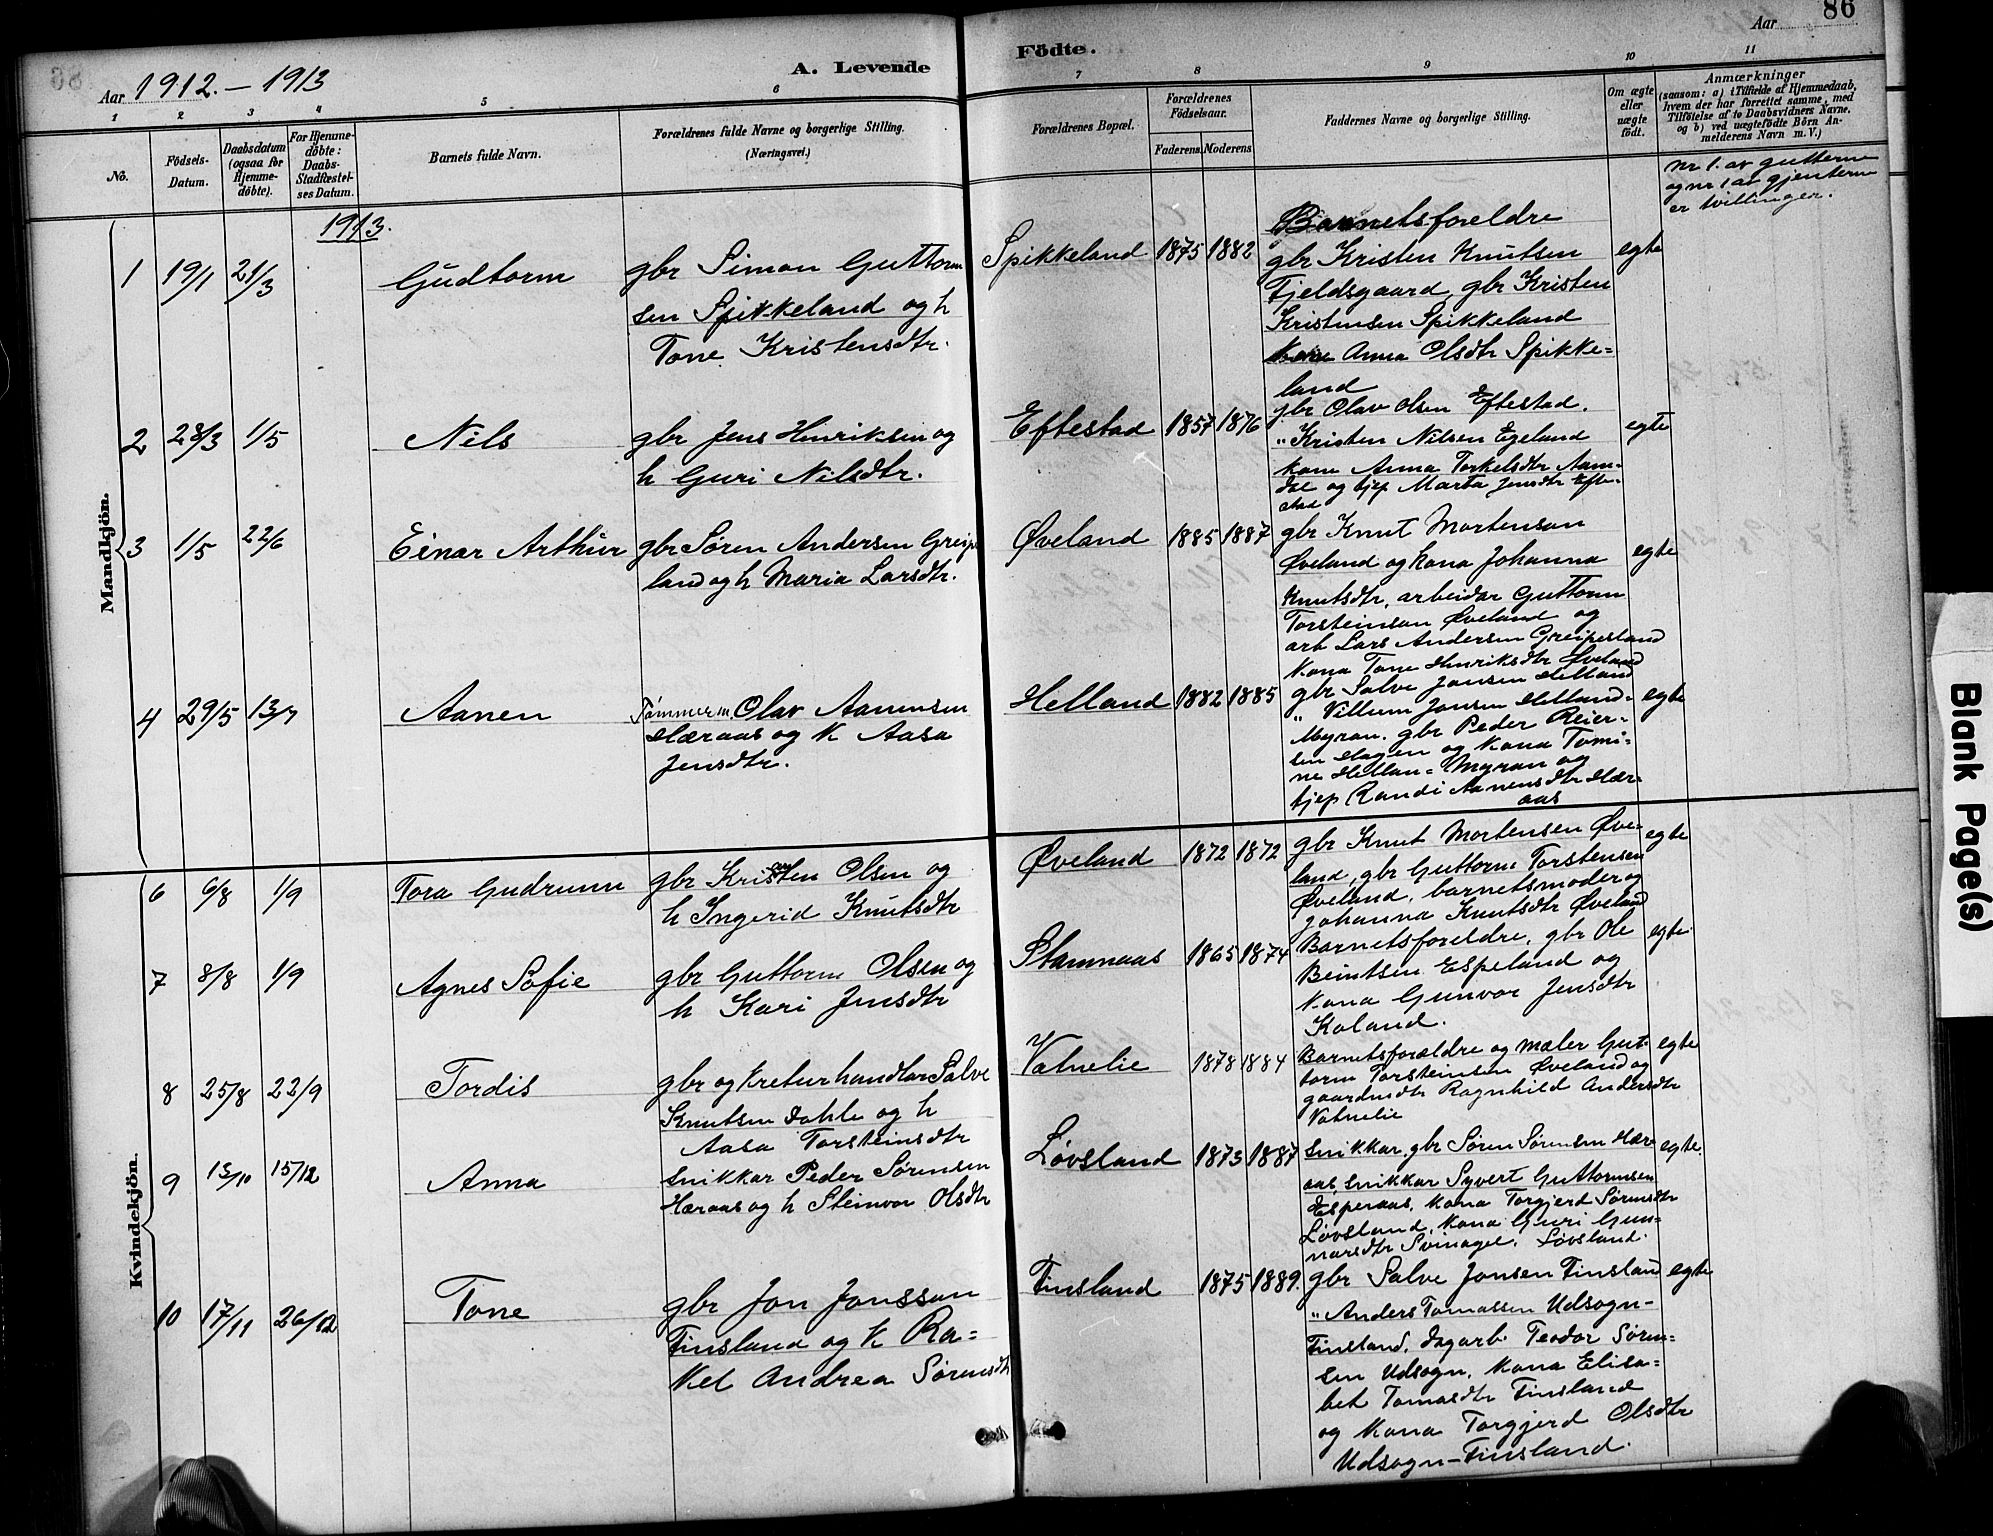 Aar 1912.-1913
A. Levende
Födte.
Aar
86
1
2
3
4
5
6
7
8
9
10
11
No.
Födsels-
Datum.
Daabsdatum
(ogsaa for
Hjemme-
döbte).
For Hjemme-
döbte:
Daabs-
Stadfæstel-
ses Datum.
Barnets fulde Navn.
Forældrenes fulde Navne og borgerlige Stilling.
(Næringsvei.)
Forældrenes Bopæl.
Forældrenes
Födselsaar.
Faderens.
Moderens
Faddernes Navne og borgerlige Stilling.
Om ægte
eller
uægte
födt.
Anmærkninger
(saasom: a) i Tilfælde af Hjemmedaab,
hvem der har forrettet samme, med
Tilföielse af to Daabsvidners Navne.
og b) ved uægtefödte Börn An-
melderens Navn m. V.)
nr 1. av gutterne
og nr 1 av gjenterne
er tvillinger.
Mandkjön.
1913.
1 19/1 21/3 Gudtorm
gbr Simon Guttorm
sen Spikkeland og h
Tone Kristensdtr.
Spikkeland 1875 1882
Barnets foreldre
gbr Kristen Knutsen
Fjeldsgaard, gbr Kristen
Kristensen Spikkeland
Anna Olsdtr Spikke=
land
egte
2 23/3 1/5 Nils
gbr Jens Henriksen og
h Guri Nilsdtr.
Eftestad 1857 1876
gbr Olav Olsen Eftestad.
" Kristen Nilsen Egeland
kone Anna Torkelsdtr Aam-
dal og tjep Marta Jensdtr Efte-
stad
egte
3 1/5 22/6 Einar Arthur
gbr Søren Andersen Greips
land og h Maria Larsdtr.
Øveland 1885 1887
gbr Knut Mortenson
Øveland og kona Johanna
Knutsdtr, arbeidar Guttorm
Torsteinson Øveland og
arb Lars Andersen Greipesland
Kona Tone Henriksdtr Øveland
egte
4 29/5 13/7 Aanen
Tømmerm. Olav Aanensen
Hæraas og k Aasa
Jensdtr.
Helland 1882 1885
gbr Salve Jonsen Helland
" Villum Jonsen Helland-
Myran. gbr Peder Reier-
sen Hagen og Kona Tomi-
ne Hellan= Myran og
tjep Randi Aanensdtr Hær-
aas
egte
Kvindekjön.
6 6/8 1/9 Tora Gudrunn
gbr Kristen Olsen og
h Ingerid Knutsdtr
Øveland 1872 1872
gbr Knut Mortensen Øve-
land, gbr Guttorm Torstensen
Øveland, barnets moder og
Johanna Knutsdtr Øveland
egte
7 8/8 1/9 Agnes Sofie
gbr Guttorm Olsen og
h Kari Jensdtr
Stamnaas 1865 1874
Barnets foreldre, gbr Ole
Beintsen Espeland og
Kona Gunvor Jensdtr
Koland.
egte
8 25/8 22/9 Tordis
gbr og Kreturhandlar Salve
Knutsen Dahle og h
Aasa Torsteinsdtr
Vatnelie 1878 1884
Barnets forældre og maler Gut-
torm Torsteinsen Øveland og
gaardmdtr Ragnhild Andersdtr
Vatnelie
egte
9 13/10 15/12 Anna
snikkar Peder Sørensen
Hæraas og h Steinvor Olsdtr
Løvsland 1873 1887
snikkar, gbr Søren Sørensen Hær
aas, snikkar Syvert Guttormsen
Esperaas, Kona Torgjerd Sørensdtr
Løvsland, Kona Guri Gun-
narsdtr Løvsland.
egte.
10 17/11 26/12 Tone
gbr Jon Jonsson
Finsland og k Ra-
kel Andrea Sørensdtr
Finsland 1875 1889.
gbr Salve Jonsen Finsland
" Anders Tomassen Udsogn-
Finsland, dagarb. Teodor Søren-
sen Udsogn, Kona Elisa-
bet Tomasdtr Finsland
og Kona Torgjerd Olsdtr
Udsogn-Finsland.
egte
Blank Page(s)